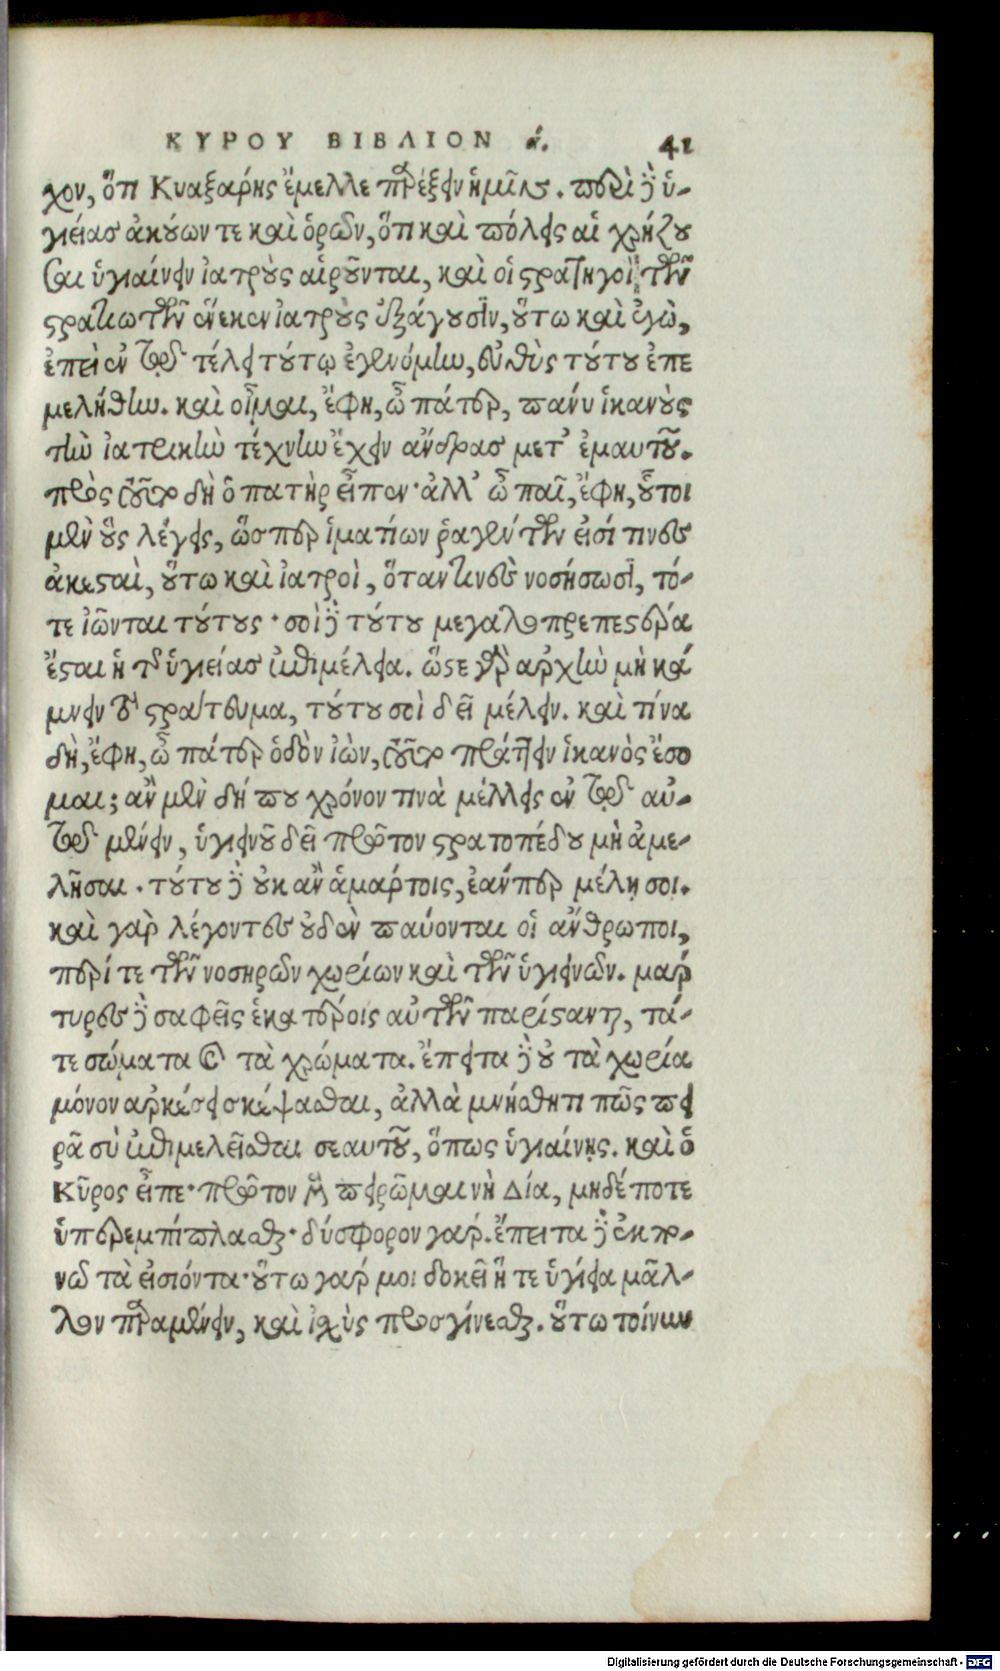 ΚΥΡΟΥ ΒΙΒΛΙΟΝ α΄. 41
χον, ὅτι Κυαξάρης ἔμελλε παρέξειν ἡμῖν. περὶ δὲ ὑ-
γιείας ἀκούων τε καὶ ὁρῶν, ὅτι καὶ πόλεις αἱ χρῄζου
σαι ὑγιαίνειν ἰατροὺς αἱροῦνται, καὶ οἱ στρατηγοὶ τῶν
στρατιωτῶν ἕνεκεν ἰατροὺς ἐξάγουσιν, οὕτω καὶ ἐγὼ,
ἐπεὶ ἐν τῷ τέλει τούτῳ ἐγενόμην, εὐθὺς τούτου ἐπε
μελήθην. καὶ οἶμαι, ἔφη, ὦ πάτερ, πάνυ ἱκανοὺς
τὴν ἰατρικὴν τέχνην ἔχειν ἄνδρας μετ' ἐμαυτοῦ.
πρὸς ταῦτα δὴ ὁ πατὴρ εἶπεν· ἀλλ' ὦ παῖ, ἔφη, οὗτοι
μὲν οὓς λέγεις, ὥσπερ ἱματίων ῥαγέντων εἰσί τινες
ἀκεσταὶ, οὕτω καὶ ἰατροὶ, ὅταν τινὲς νοσήσωσι, τό-
τε ἰῶνται τούτους· σοὶ δὲ τούτου μεγαλοπρεπεστέρα
ἔσται ἡ τῆς ὑγιείας ἐπιμέλεια. ὥστε γὰρ ἀρχὴν μὴ κά
μνειν τὸ στράτευμα, τούτου σοὶ δεῖ μέλειν. καὶ τίνα
δὴ, ἔφη, ὦ πάτερ ὁδὸν ἰὼν, ταῦτα πράττειν ἱκανὸς ἔσο
μαι; ἂν μὲν δή που χρόνον τινὰ μέλλῃς ἐν τῷ αὐ-
τῷ μένειν, ὑγιεινοῦ δεῖ πρῶτον στρατοπέδου μὴ ἀμε-
λῆσαι. τούτου δὲ οὐκ ἂν ἁμάρτοις, ἐάνπερ μέλῃ σοι.
καὶ γὰρ λέγοντες οὐδὲν παύονται οἱ ἄνθρωποι,
περί τε τῶν νοσηρῶν χωρίων καὶ τῶν ὑγιεινῶν. μάρ
τυρες δὲ σαφεῖς ἑκατέροις αὐτῶν παρίστανται, τά-
τε σώματα καὶ τὰ χρώματα. ἔπειτα δὲ οὐ τὰ χωρία
μόνον ἀρκέσει σκέψασθαι, ἀλλὰ μνήσθητι πῶς πει
ρᾷ σὺ ἐπιμελεῖσθαι σεαυτοῦ, ὅπως ὑγιαίνῃς. καὶ ὁ
Κῦρος εἶπε· πρῶτον μὲν πειρῶμαι νὴ Δία, μηδέποτε
ὑπερεμπίπλασθαι· δύσφορον γάρ. ἔπειτα δὲ ἐκπο-
νῶ τὰ εἰσιόντα· οὕτω γάρ μοι δοκεῖ ἥ τε ὑγίεια μᾶλ-
λον παραμένειν, καὶ ἰσχὺς προσγίνεσθαι. οὕτω τοίνυν
Digitalisierung gefördert durch die Deutsche Forschungsgemeinschaft - DFG